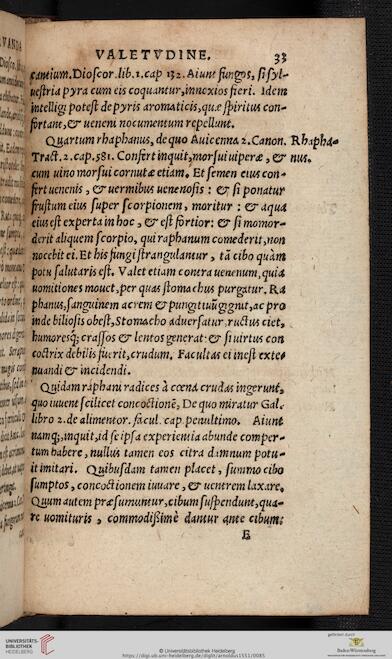 VALETVDINE. 33
cantium. Dioscor. lib. 1. cap 132. Aiunt fungos, si syl-
uestria pyra cum eis coquantur, innoxios fieri. Idem
intelligi potest de pyris aromaticis, quæ spiritus con-
fortant, & ueneni nocumentum repellunt.
Quartum rhaphanus, de quo Auicenna 2. Canon. Rhapha-
Tract. 2. cap. 581. Confert inquit, morsui viperæ, & nus.
cum uino morsui cornutæ etiam. Et semen eius con-
fert uenenis, & uermibus uenenosis: & si ponatur
frustum eius super scorpionem, moritur: & aqua
eius est experta in hoc, & est fortior: & si momor-
derit aliquem scorpio, qui raphanum comederit, non
nocebit ei. Et his fungi strangulantur, tā cibo quàm
potu salutaris est. Valet etiam contra uenenum, quia
uomitiones mouet, per quas stomachus purgatur. Ra
phanus, sanguinem acrem & pungituū gignit, ac pro
inde biliosis obest, Stomacho aduersatur, ructus ciet,
humoresq; crassos & lentos generat: & si uirtus con
coctrix debilis fuerit, crudum. Facultas ei inest exte
nuandi & incidendi.
Quidam raphani radices à cœna crudas ingerunt,
quo iuuent scilicet concoctionē, De quo miratur Gal.
libro 2. de alimentor. facul. cap. penultimo. Aiunt
namq;, inquit, id se ipsa experientia abunde comper-
tum habere, nullus tamen eos citra damnum potu-
it imitari. Quibusdam tamen placet, summo cibo
sumptos, concoctionem iuuare, & uentrem laxare.
Quum autem præsumuntur, cibum suspendunt, qua-
re uomituris, commodißimè dantur ante cibum:
E
UNIVERSITÄTS-
BIBLIOTHEK
HEIDELBERG
https://digi.ub.uni-heidelberg.de/diglit/arnoldus1551/0085
© Universitätsbibliothek Heidelberg
gefördert durch
Baden-Württemberg